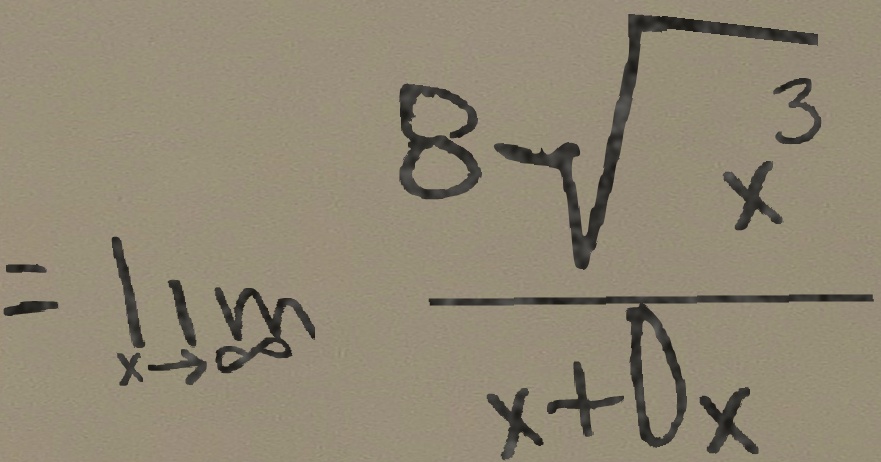 = \lim_{x \to \infty} \frac{8\sqrt{x^3}}{x+0x}